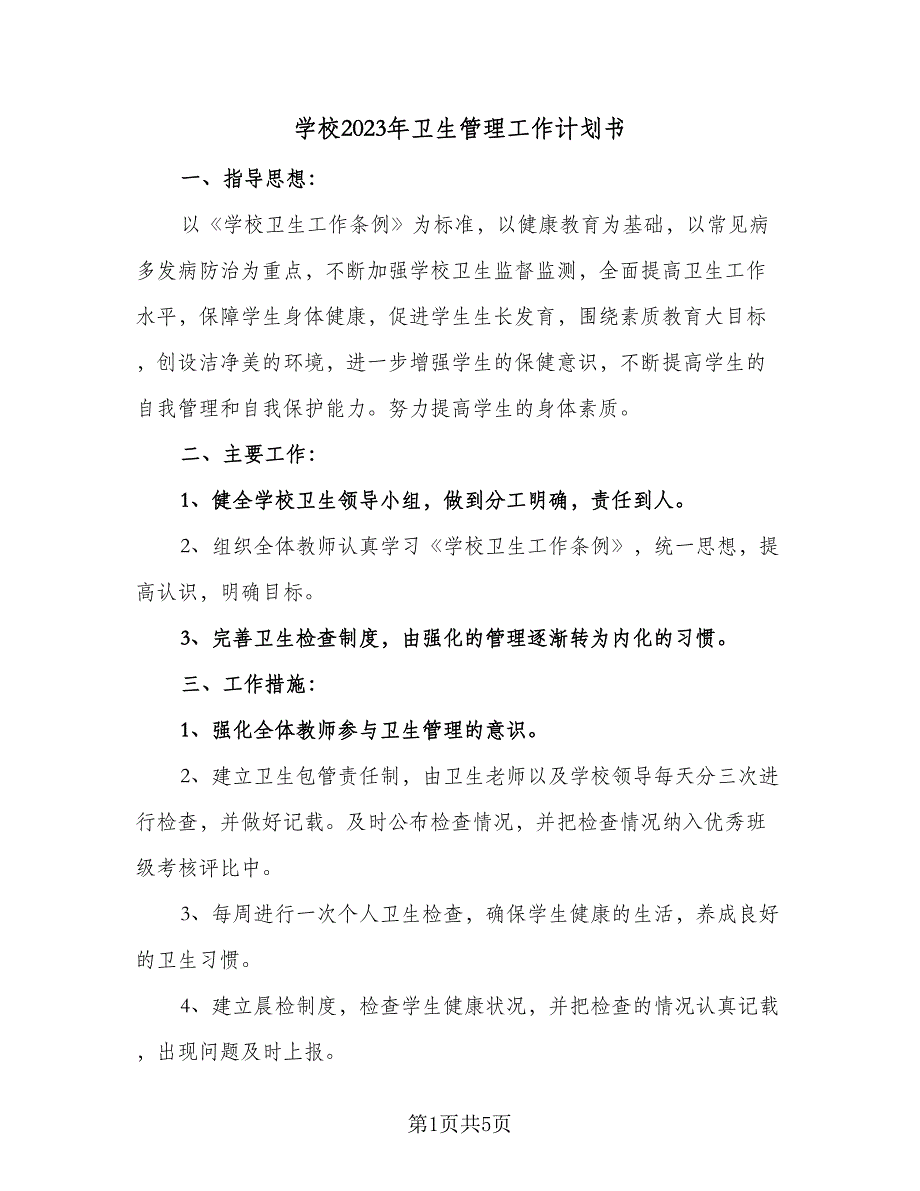 学校2023年卫生管理工作计划书
一、指导思想：
以《学校卫生工作条例》为标准，以健康教育为基础，以常见病
多发病防治为重点，不断加强学校卫生监督监测，全面提高卫生工作
水平，保障学生身体健康，促进学生生长发育，围绕素质教育大目标
，创设洁净美的环境，进一步增强学生的保健意识，不断提高学生的
自我管理和自我保护能力。努力提高学生的身体素质。
二、主要工作：
1、健全学校卫生领导小组，做到分工明确，责任到人。
2、组织全体教师认真学习《学校卫生工作条例》，统一思想，提
高认识，明确目标。
3、完善卫生检查制度，由强化的管理逐渐转为内化的习惯。
三、工作措施：
1、强化全体教师参与卫生管理的意识。
2、建立卫生包管责任制，由卫生老师以及学校领导每天分三次进
行检查，并做好记载。及时公布检查情况，并把检查情况纳入优秀班
级考核评比中。
3、每周进行一次个人卫生检查，确保学生健康的生活，养成良好
的卫生习惯。
4、建立晨检制度，检查学生健康状况，并把检查的情况认真记载
，出现问题及时上报。
第1页共5页